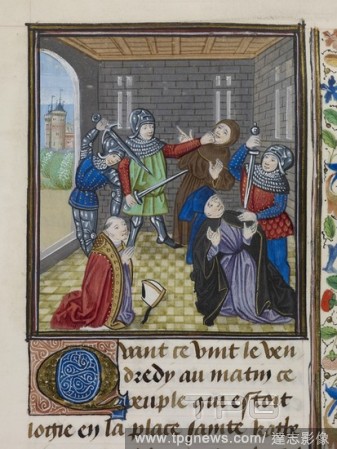 Quant ce vint le ven
dredy au matin ce
peuple qui estoit
logie en la place sainte kathe
www.tpgnews.com/達志影像